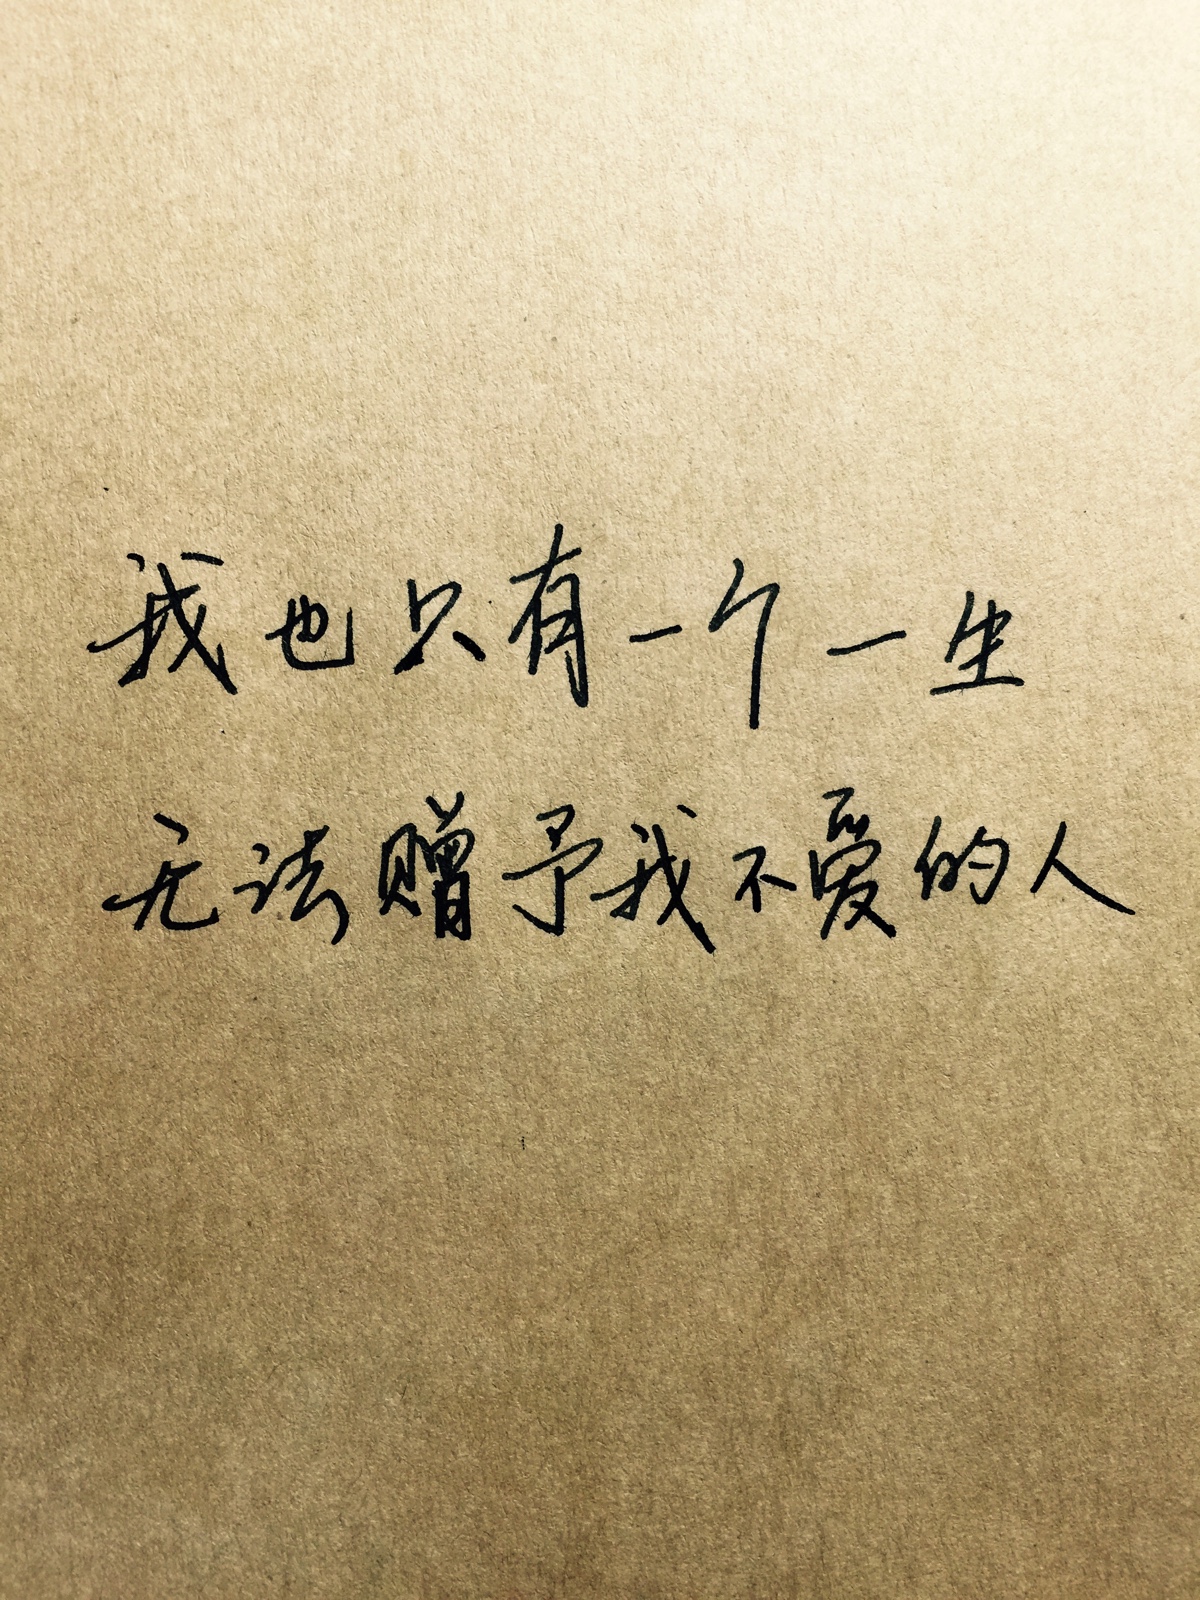 我也只有一个一生
无法赠予我不爱的人